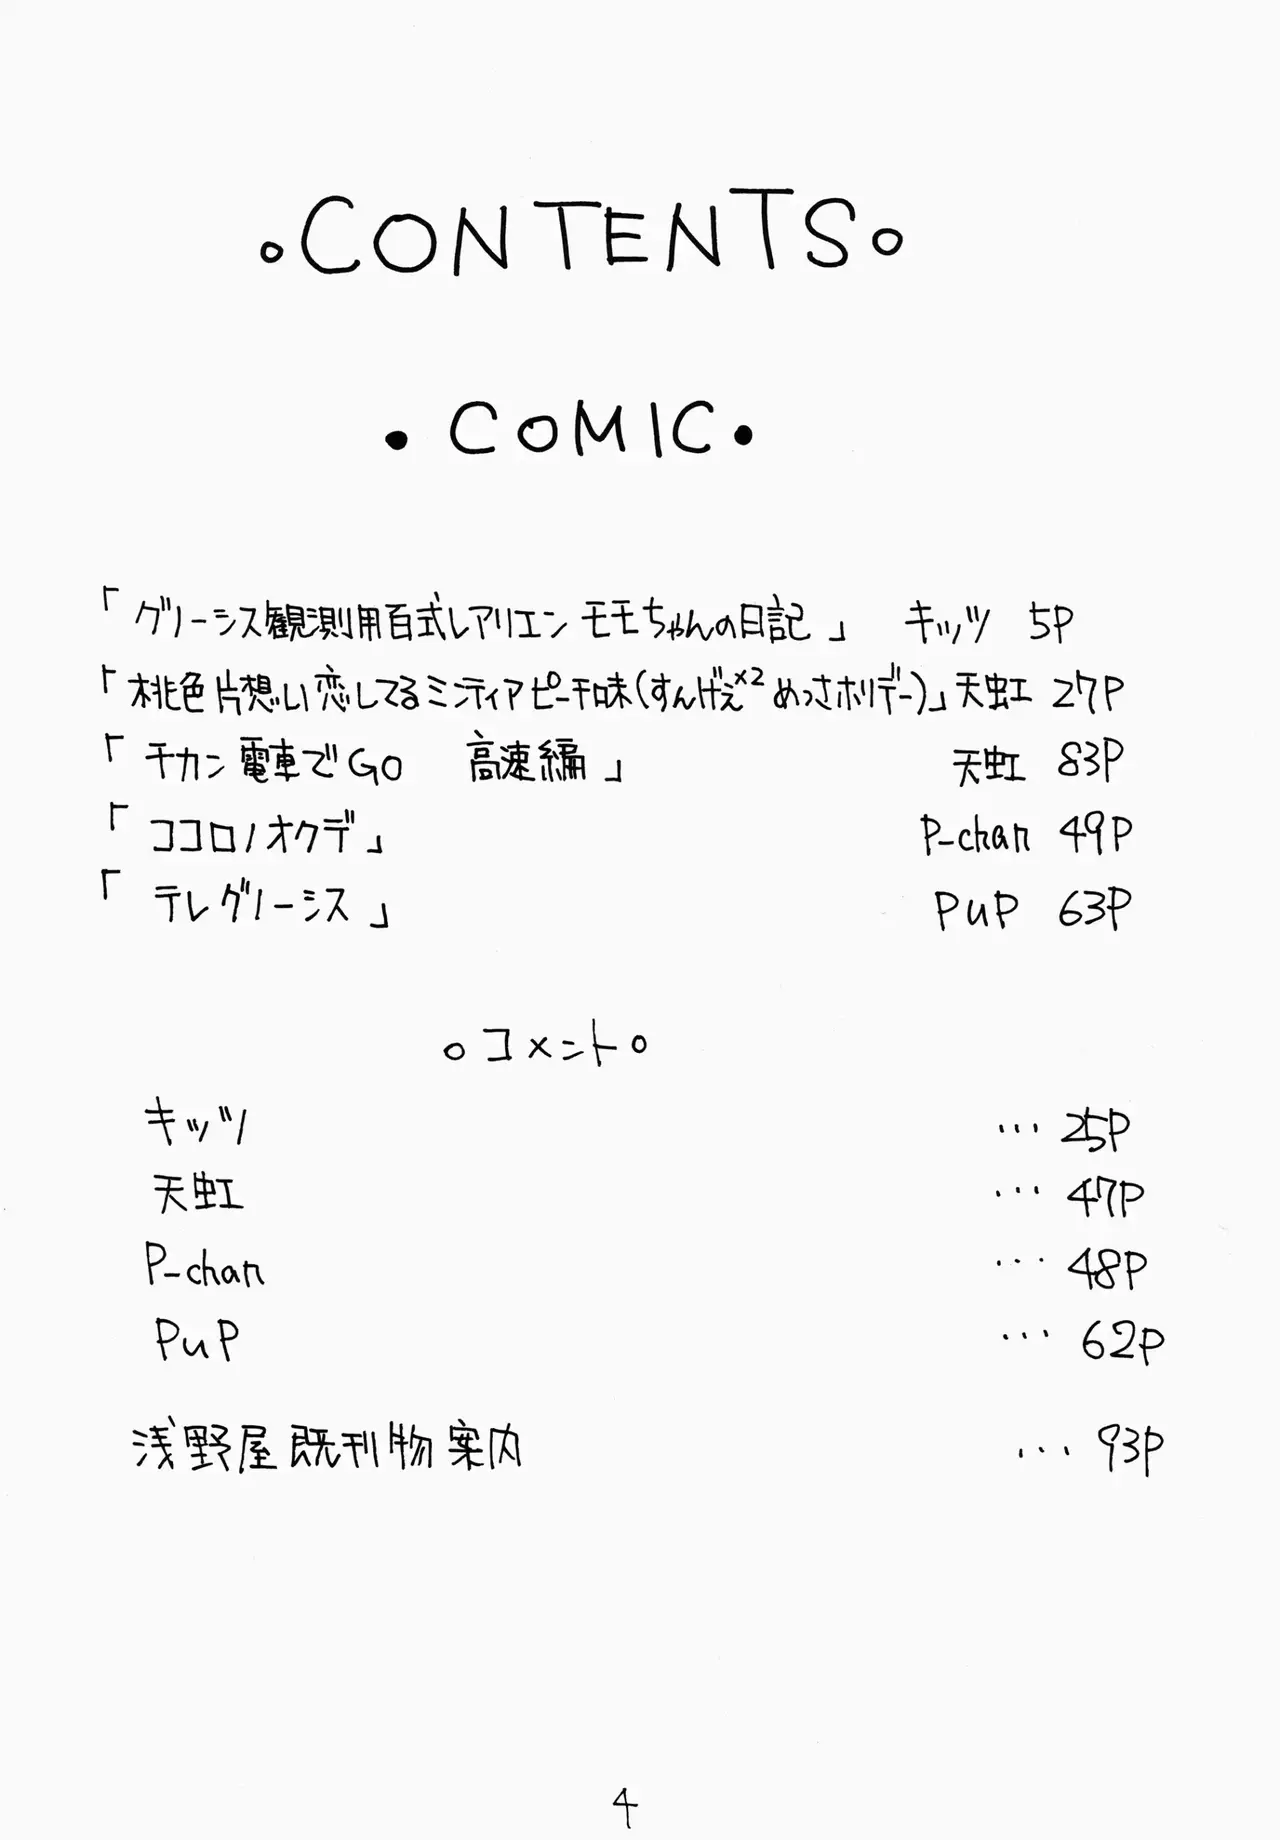 。CONTENTS。
・COMIC・
「グノーシス観測用百式レアリエン モモちゃんの日記」 キッツ 5P
「桃色片想い恋してるミンティアピーチ味(すんげぇ×2めっさホリデー)」天虹 27P
「チカン電車でGO 高速編」 天虹 83P
「ココロノオクデ」 P-chan 49P
「テレグノーシス」 PuP 63P
。コメント。
キッツ … 25P
天虹 … 47P
P-chan … 48P
PuP … 62P
浅野屋既刊物案内 … 93P
4